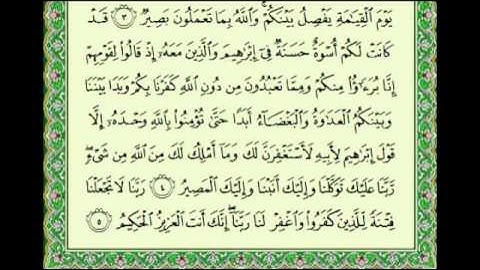 يَوْمَ الْقِيَامَةِ يَفْصِلُ بَيْنَكُمْ ۚ وَاللَّهُ بِمَا تَعْمَلُونَ بَصِيرٌ ۝٣ قَدْ
كَانَتْ لَكُمْ أُسْوَةٌ حَسَنَةٌ فِي إِبْرَاهِيمَ وَالَّذِينَ مَعَهُ إِذْ قَالُوا لِقَوْمِهِمْ
إِنَّا بُرَءَاؤُا مِنْكُمْ وَمِمَّا تَعْبُدُونَ مِنْ دُونِ اللَّهِ كَفَرْنَا بِكُمْ وَبَدَا بَيْنَنَا
وَبَيْنَكُمُ الْعَدَاوَةُ وَالْبَغْضَاءُ أَبَدًا حَتَّى تُؤْمِنُوا بِاللَّهِ وَحْدَهُ إِلَّا
قَوْلَ إِبْرَاهِيمَ لِأَبِيهِ لَأَسْتَغْفِرَنَّ لَكَ وَمَا أَمْلِكُ لَكَ مِنَ اللَّهِ مِنْ شَيْءٍ ۖ
رَبَّنَا عَلَيْكَ تَوَكَّلْنَا وَإِلَيْكَ أَنَبْنَا وَإِلَيْكَ الْمَصِيرُ ۝٤ رَبَّنَا لَا تَجْعَلْنَا
فِتْنَةً لِلَّذِينَ كَفَرُوا وَاغْفِرْ لَنَا رَبَّنَا ۖ إِنَّكَ أَنْتَ الْعَزِيزُ الْحَكِيمُ ۝٥